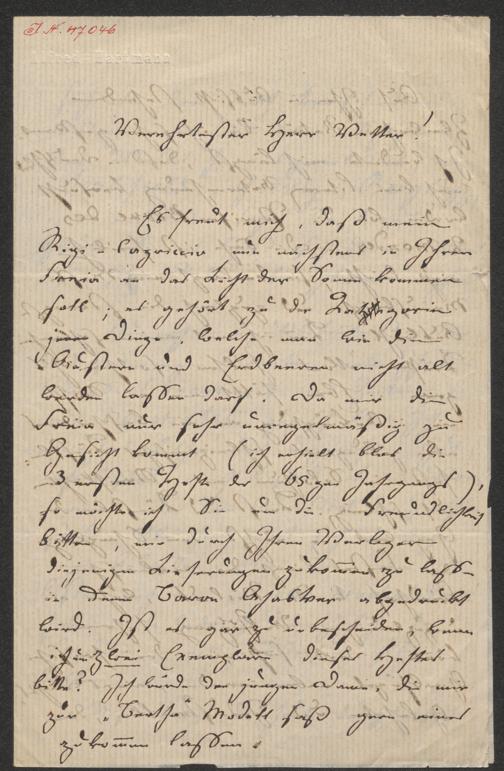 J. N. 47046
Alfred Hartmann
Verehrtester Herr Vetter!
Es freut mich, daß mein
Rigi-Capriccio nun nächstens in Ihrer
Freia an das Licht der Sonne kommen
soll; es gehört zu der Kategorie
jener Dinge, welche man wie die
Austern und Erdbeeren nicht alt
werden lassen darf. Da mir die
Freia nur sehr unregelmäßig zu
Gesicht kommt (ich erhielt blos die
3 ersten Hefte des 65ger Jahrgangs),
so möchte ich Sie um die Freundlichkeit
bitten, mir durch Ihren Verleger
diejenigen Lieferungen zukommen zu lassen
in denen Baron Ahasver abgedruckt
wird. Ist es gar zu unbescheiden, wenn
ich um zwei Exemplare dieser Hefte
bitte? Ich würde der jungen Dame, die mir
zur „Bertha" Modell saß gern eines
zukommen lassen.